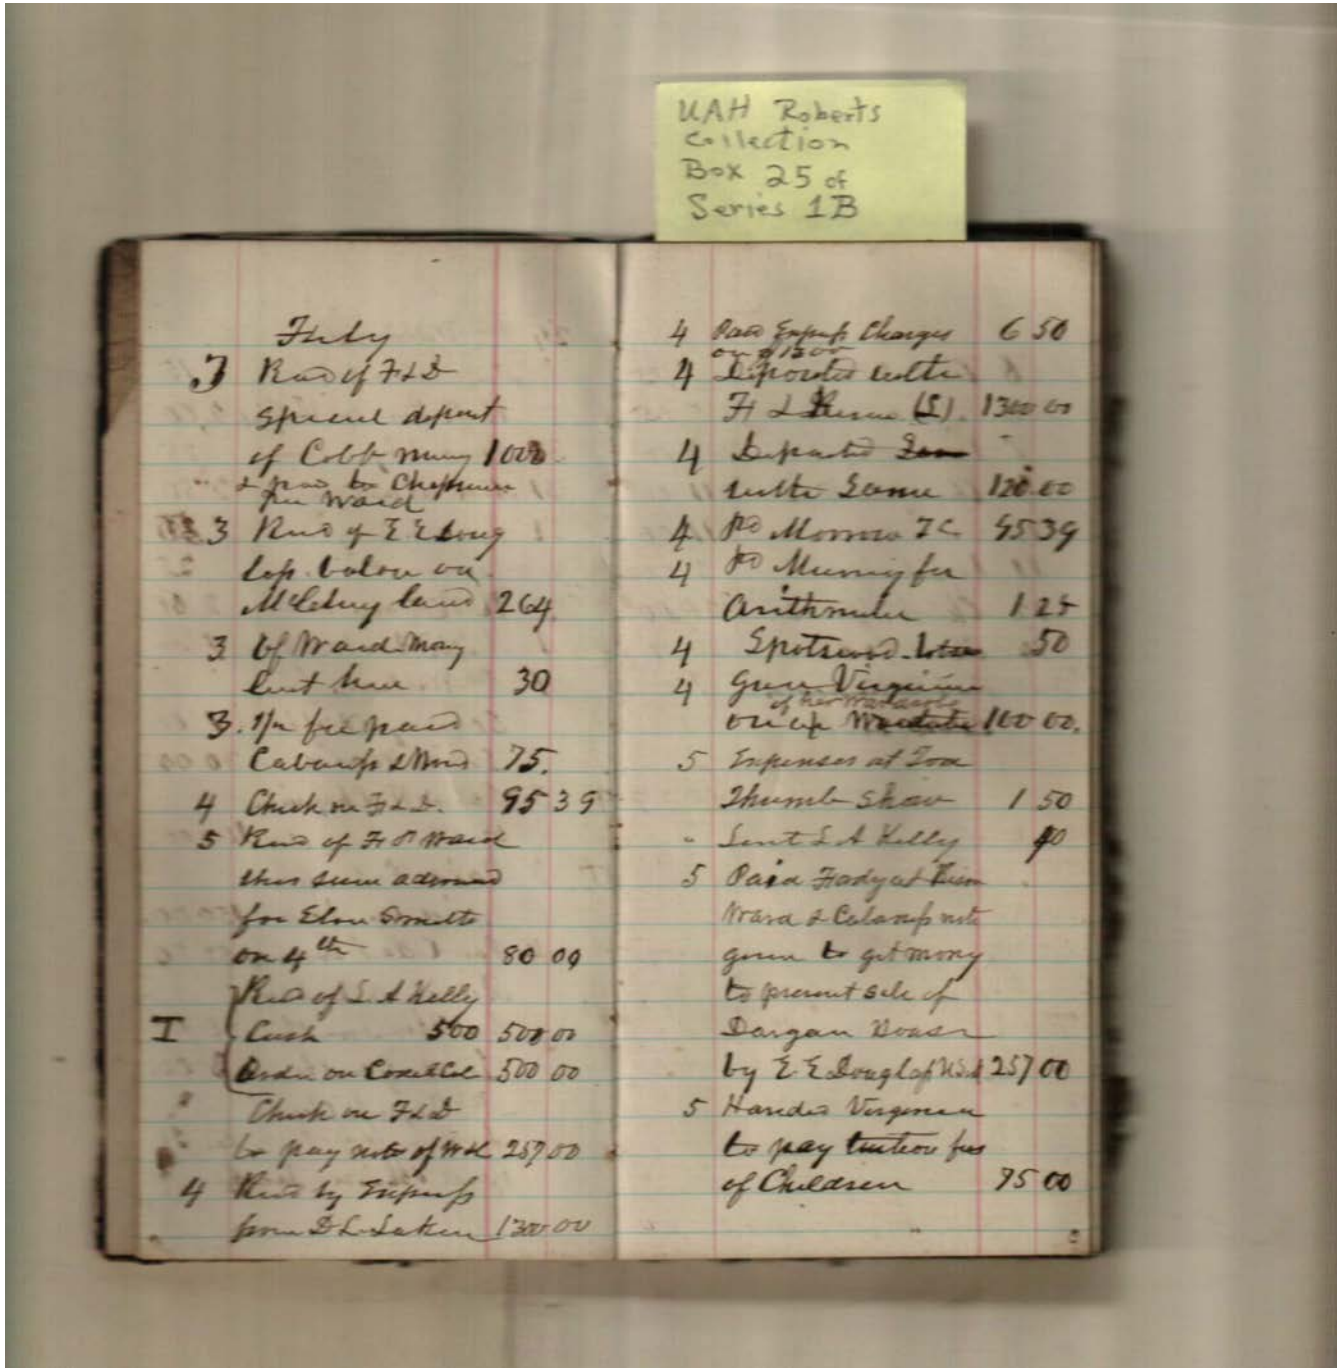 UAH Roberts
Collection
Box 25 of
Series 1B
3 Recd of F L D
Special deposit
of Cobb money 1000
& paid to Chapman
per Ward
3 Recd of E E Doug
lass balance on
land 264
3 Of Ward Money
lent him 30
3. fee paid
Cabaniss & Ward 75.
4 Check on F L D. 95 39
5 Recd of Ward
this sum
for Smith
on 4th 80 00
Recd of L A Kelly
I Cash 500 500 00
Order on 500 00
" Check on F L D
to pay note of W & C 257 00
4 Recd by Express
from D L 1300 00
4 Paid Express Charges 6 50
on $1300
4 Deposited with
(S) 1300 00
4 Deposited
with Same 120.00
4 Pd Morrow 95 39
4 Pd Murray for
Arithmetic 1 25
4 Spotswood 50
4 Gave Virginia
of her
100 00.
5 Expenses at Tom
Thumb Show 1 50
" Lent L A Kelly 40
5 Paid
Ward & Cabaniss note
given to get money
to prevent sale of
Dargan House
by E E Douglass 257 00
5 Handed Virginia
to pay tuition fees
of Children 75 00